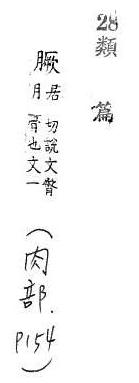 28 類篇
居月切說文臀
骨也文一
(肉部. P154)